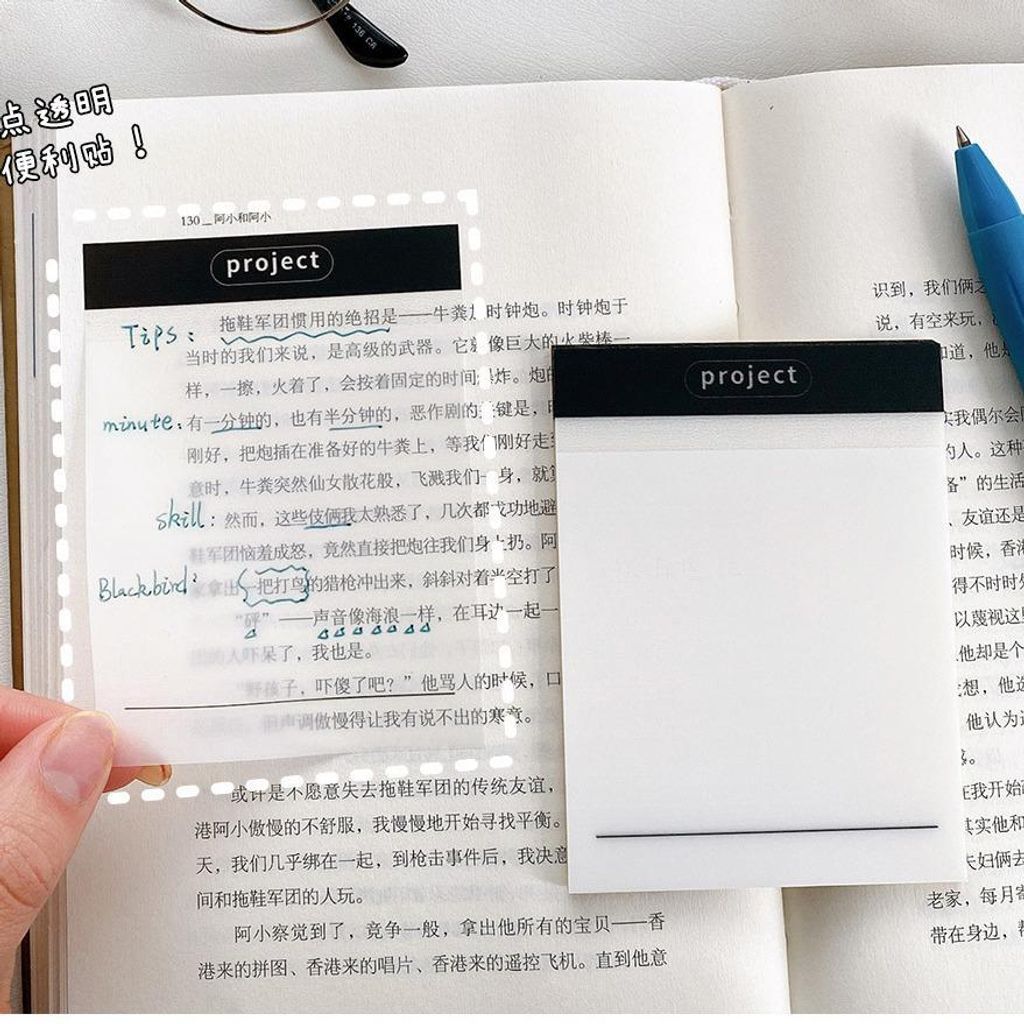 点透明
便利贴！
130 阿小和阿小
project
Tips：
拖鞋军团惯用的绝招是——牛粪 时钟炮。时钟炮于
当时的我们来说，是高级的武器。它 像巨大的火柴棒一
样，一擦，火着了，会按着固定的时间 炸。炮
minute：有一分钟的，也有半分钟的，恶作剧的 键是，
刚好，把炮插在准备好的牛粪上，等我们刚好走
意时，牛粪突然仙女散花般，飞溅我们一身，就
skill：然而，这些伎俩我太熟悉了，几次都 功地避
鞋军团恼羞成怒，竟然直接把炮往我们身上扔。阿
Blackbird：
拿出一把打鸟的猎枪冲出来，斜斜对着半空打了
“砰”——声音像海浪一样，在耳边一起一
的人吓呆了，我也是。
“野孩子，吓傻了吧？”他骂人的时候，口
但声调傲慢得让我有说不出的寒意。
或许是不愿意失去拖鞋军团的传统友谊，
港阿小傲慢的不舒服，我慢慢地开始寻找平衡。
天，我们几乎绑在一起，到枪击事件后，我决意
间和拖鞋军团的人玩。
阿小察觉到了，竞争一般，拿出他所有的宝贝——香
港来的拼图、香港来的唱片、香港来的遥控飞机。直到他意
project
识到，我们俩之
说，有空来玩，
知道，他
实我偶尔会
的人。这种
备”的生活
、友谊还是
时候，香
得不时时
以蔑视这
他却是个
想，他
他认为
。
在我开始
其实他和
夫妇俩去
老家，每月寄
带在身边，